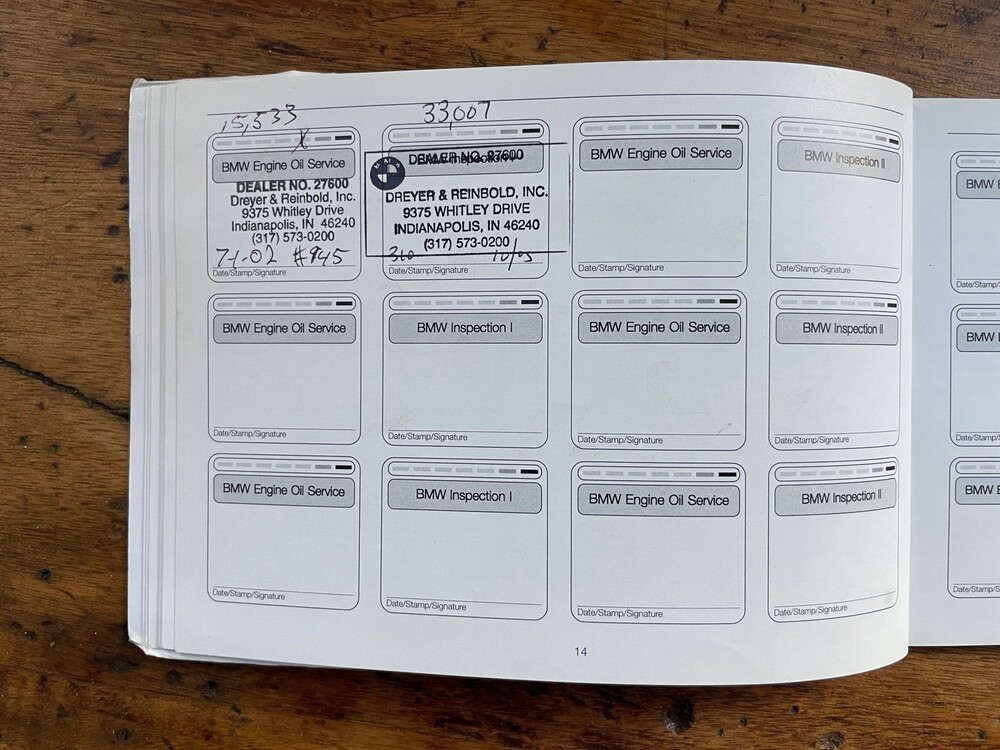 15,533
33,007
X
BMW Engine Oil Service
DEALER NO. 27600
Dreyer & Reinbold, Inc.
9375 Whitley Drive
Indianapolis, IN 46240
(317) 573-0200
7-1-02 #945
Date/Stamp/Signature
BMW Inspection I
DEALER NO. 27600
DREYER & REINBOLD, INC.
9375 WHITLEY DRIVE
INDIANAPOLIS, IN 46240
(317) 573-0200
310 10/03
Date/Stamp/Signature
BMW Engine Oil Service
Date/Stamp/Signature
BMW Inspection II
Date/Stamp/Signature
BMW Engine Oil Service
Date/Stamp/Signature
BMW Inspection I
Date/Stamp/Signature
BMW Engine Oil Service
Date/Stamp/Signature
BMW Inspection II
Date/Stamp/Signature
BMW Engine Oil Service
Date/Stamp/Signature
BMW Inspection I
Date/Stamp/Signature
BMW Engine Oil Service
Date/Stamp/Signature
BMW Inspection II
Date/Stamp/Signature
14
BMW
Date/Stamp
BMW
Date/Stamp
BMW
Date/Stamp